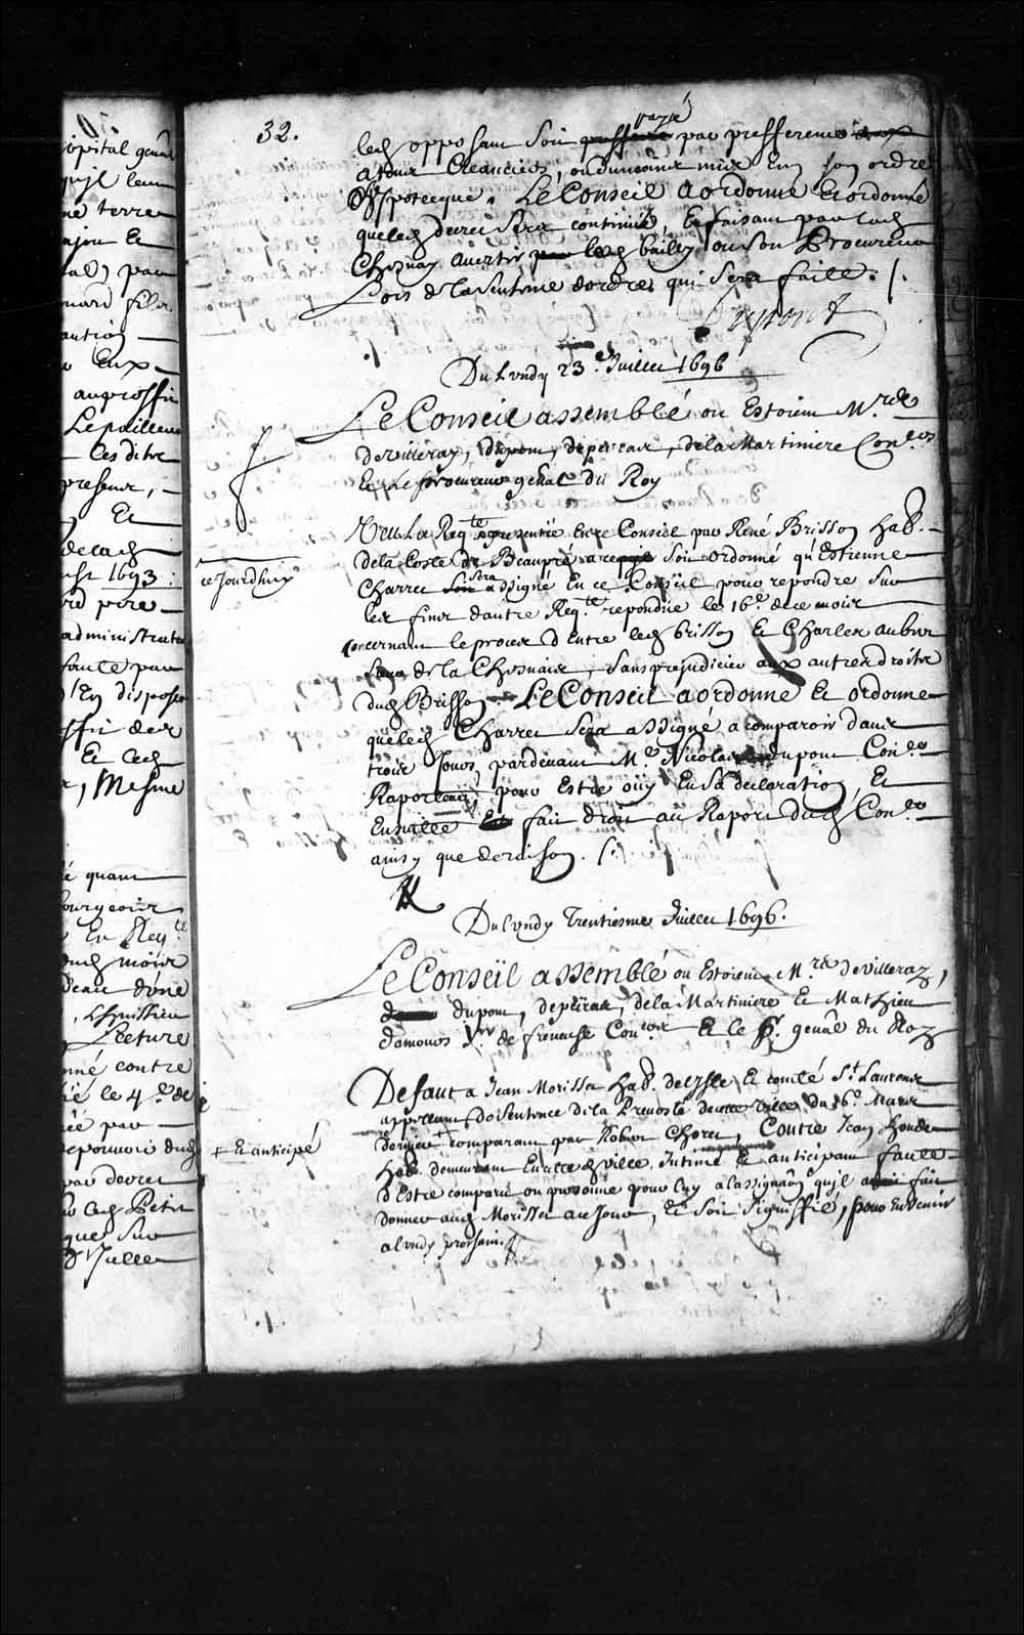 opital gnal
qu'il leur
ne terre
ajou Et
pau
nard filz
aution
Eux
auproffit
Lepailleur
Lesditz
presence,
Et
deladt
1693:
pere
administrate
faute par
d'En dispose
ffit des
Et led
Mesme
é quant
bourgeois
En Reqte
dud mois
L'huissier
Lecture
né contre
ié le 4e de
ée par
pouvoir dud
par devers
led Petit
que sur
Juillet
32.
payé
led opposant soit par prefference
a tous Creanciers, ou du moins mis En son ordre
d'hypotecque. Le Conseil a ordonné Et ordonne
que led decret sera continué, Et faisant par lad
Chesnay avertir led bailly ou son Procureur
Lors de la Sentence d'ordre qui sera faitte. /.
Dupont
Du Lundy 23e Juillet 1696
Le Conseil assemblé ou Estoient Mrs de
de villeray, dupont, depeiras, de la Martiniere Conrs
Et le procureur genal du Roy
Veu La Reqte presentée En ce Conseil par René Brisson hab.
de la Coste de Beaupré a ce soit ordonné qu'Estienne
ce Jourdhuy
Charrer sera assigné En ce Conseil pour repondre sur
les fins d'autre Reqte repondüe le 16e de ce mois
concernant le proces d'Entre led brisson Et Charles aubert
de la Chesnaie, sans prejudicier aux autres droits
dud Brisson Le Conseil a ordonné Et ordonne
que led Charrer sera assigné a comparoir dans
trois Jours, pardevant Me Nicolas dupont Coner
Raporteur, pour Estre oüy En sa declaration, Et
Ensuitte fait droit au Raport dud Coner
ainsy que de raison. /.
Du lundy Trentiesme Juillet 1696.
Le Conseil assemblé ou Estoient Mrs de Villeray,
dupont, depeiras, de la Martiniere Et Mathieu
damours Sr de freneuse Coners Et le Pr. genal du Roy
Defaut a Jean Morisset hab. de l'Isle Et comté St Laurent
appellant de Sentence de la Prevosté de cette ville du 6e Mars
dernier comparant par Robert Choret, Contre Jean houde
+ Et anticipé
hab. demeurant En cette ville. Intimé Et anticipant faute
d'Estre comparu ou personne pour luy a l'assignaon qu'il a fait
donner aud Morisset a ce Jour, Et soit signiffié, pour En venir
a lundy prochain.